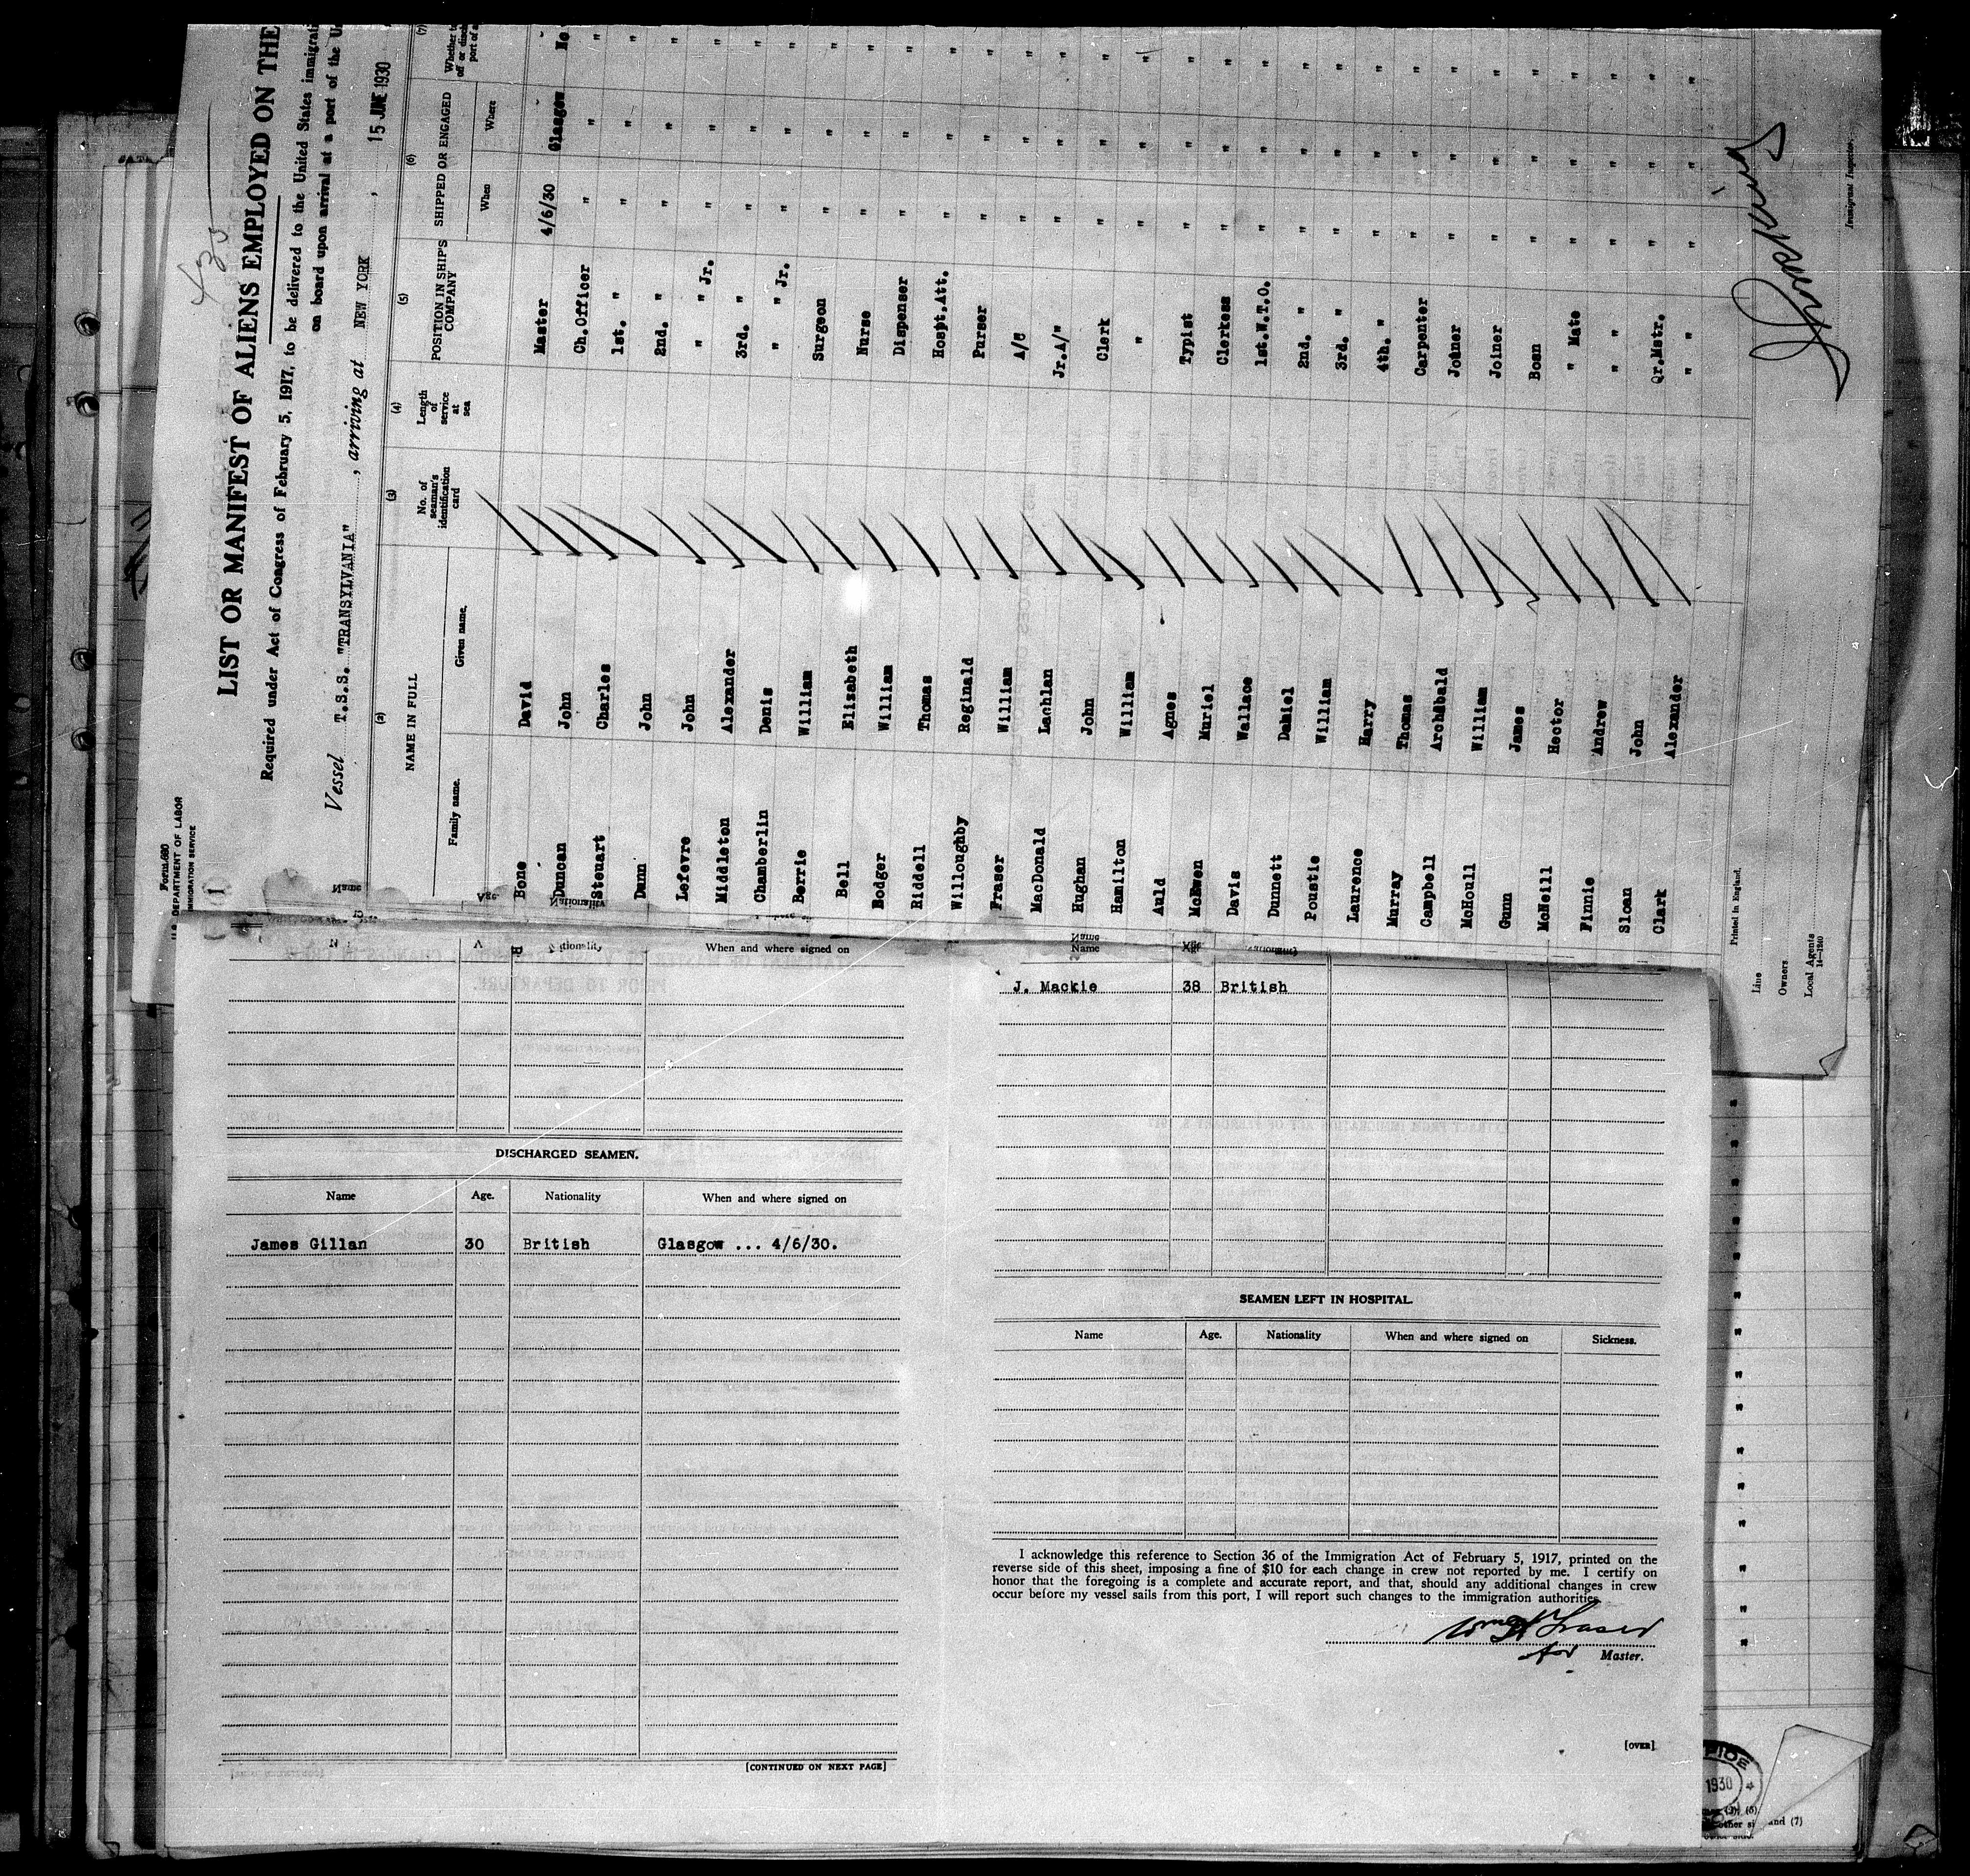 Form 680
U.S. DEPARTMENT OF LABOR
IMMIGRATION SERVICE
1
LIST OR MANIFEST OF ALIENS EMPLOYED ON THE
Required under Act of Congress of February 5, 1917, to be delivered to the United States immigrati
on board upon arrival at a port of the U
Vessel T.S.S. "TRANSYLVANIA", arriving at NEW YORK, 15 JUNE 1930
(2) (3) (4) (5) (6) (7)
NAME IN FULL
Family name. Given name.
No. of seaman's identification card
Length of service at sea
POSITION IN SHIP'S COMPANY
SHIPPED OR ENGAGED
When Where
Bone David Master 4/6/30 Glasgow No
Duncan John Ch.Officer " " "
Steuart Charles 1st. " " " "
Dunn John 2nd. " " " "
Lefevre John " " Jr. " " "
Middleton Alexander 3rd. " " " "
Chamberlin Denis " " Jr. " " "
Berrie William Surgeon " " "
Bell Elizabeth Nurse " " "
Bodger William Dispenser " " "
Riddell Thomas Hospt.Att. " " "
Willoughby Reginald Purser " " "
Fraser William A/C " " "
MacDonald Lachlan Jr.A/" " " "
Hughan John Clerk " " "
Hamilton William " " " "
Auld Agnes Typist " " "
McEwen Muriel Clerkess " " "
Davis Wallace 1st.W.T.O. " " "
Dunnett Daniel 2nd. " " " "
Poustie William 3rd. " " " "
Laurence Harry 4th. " " " "
Murray Thomas Carpenter " " "
Campbell Archibald Joiner " " "
McHoull William Joiner " " "
Gunn James Bosn " " "
McNeill Hector " Mate " " "
Finnie Andrew " " " " "
Sloan John Qr.Mstr. " " "
Clark Alexander " " " " "
Printed in England.
Line
Owners
Local Agents
14-1240
Immigrant Inspector.
Nationality When and where signed on
DISCHARGED SEAMEN.
Name Age. Nationality When and where signed on
James Gillan 30 British Glasgow ... 4/6/30.
[CONTINUED ON NEXT PAGE]
Name
J. Mackie 38 British
SEAMEN LEFT IN HOSPITAL.
Name Age. Nationality When and where signed on Sickness.
I acknowledge this reference to Section 36 of the Immigration Act of February 5, 1917, printed on the
reverse side of this sheet, imposing a fine of $10 for each change in crew not reported by me. I certify on
honor that the foregoing is a complete and accurate report, and that, should any additional changes in crew
occur before my vessel sails from this port, I will report such changes to the immigration authorities.
Wm Fraser
for Master.
[OVER]
1930
and (7)